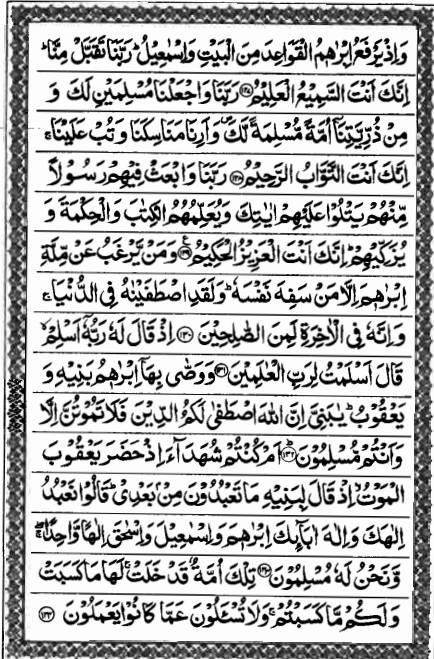 وَاِذْ يَرْفَعُ اِبْرٰهٖمُ الْقَوَاعِدَ مِنَ الْبَيْتِ وَاِسْمٰعِيْلُ ؕ رَبَّنَا تَقَبَّلْ مِنَّا ؕ
اِنَّكَ اَنْتَ السَّمِيْعُ الْعَلِيْمُ ۝۱۲۷ رَبَّنَا وَاجْعَلْنَا مُسْلِمَيْنِ لَكَ وَ
مِنْ ذُرِّيَّتِنَاۤ اُمَّةً مُّسْلِمَةً لَّكَ ۪ وَاَرِنَا مَنَاسِكَنَا وَتُبْ عَلَيْنَا ۚ
اِنَّكَ اَنْتَ التَّوَّابُ الرَّحِيْمُ ۝۱۲۸ رَبَّنَا وَابْعَثْ فِيْهِمْ رَسُوْلًا
مِّنْهُمْ يَتْلُوْا عَلَيْهِمْ اٰيٰتِكَ وَيُعَلِّمُهُمُ الْكِتٰبَ وَالْحِكْمَةَ وَ
يُزَكِّيْهِمْ ؕ اِنَّكَ اَنْتَ الْعَزِيْزُ الْحَكِيْمُ ۝۱۲۹ وَمَنْ يَّرْغَبُ عَنْ مِّلَّةِ
اِبْرٰهٖمَ اِلَّا مَنْ سَفِهَ نَفْسَهٗ ؕ وَلَقَدِ اصْطَفَيْنٰهُ فِى الدُّنْيَا ۚ
وَاِنَّهٗ فِى الْاٰخِرَةِ لَمِنَ الصّٰلِحِيْنَ ۝۱۳۰ اِذْ قَالَ لَهٗ رَبُّهٗۤ اَسْلِمْ ۙ
قَالَ اَسْلَمْتُ لِرَبِّ الْعٰلَمِيْنَ ۝۱۳۱ وَوَصّٰى بِهَاۤ اِبْرٰهٖمُ بَنِيْهِ وَ
يَعْقُوْبُ ؕ يٰبَنِىَّ اِنَّ اللّٰهَ اصْطَفٰى لَكُمُ الدِّيْنَ فَلَا تَمُوْتُنَّ اِلَّا
وَاَنْتُمْ مُّسْلِمُوْنَ ۝۱۳۲ اَمْ كُنْتُمْ شُهَدَآءَ اِذْ حَضَرَ يَعْقُوْبَ
الْمَوْتُ ۙ اِذْ قَالَ لِبَنِيْهِ مَا تَعْبُدُوْنَ مِنْۢ بَعْدِىْ ؕ قَالُوْا نَعْبُدُ
اِلٰهَكَ وَاِلٰهَ اٰبَآٮِٕكَ اِبْرٰهٖمَ وَاِسْمٰعِيْلَ وَاِسْحٰقَ اِلٰهًا وَّاحِدًا ۖۚ
وَّنَحْنُ لَهٗ مُسْلِمُوْنَ ۝۱۳۳ تِلْكَ اُمَّةٌ قَدْ خَلَتْ ۚ لَهَا مَا كَسَبَتْ
وَلَكُمْ مَّا كَسَبْتُمْ ۚ وَلَا تُسْـَٔلُوْنَ عَمَّا كَانُوْا يَعْمَلُوْنَ ۝۱۳۴